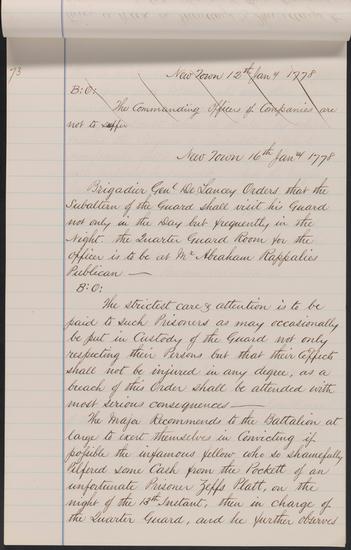 73
New Town 12th Jany 1778
B: O:
The Commanding Officers of Companies are
not to suffer
New Town 16th Jany 1778
Brigadier Genl De Lancey Orders that the
Subaltern of the Guard shall visit his Guard
not only in the Day but frequently in the
Night. the Quarter Guard Room for the
officer is to be at Mr Abraham Rappalies
Publican —
B: O:
The strictest care & attention is to be
paid to such Prisoners as may occasionally
be put in Custody of the Guard not only
respecting their Persons but that their Effects
shall not be injured in any degree, as a
beach of this Order shall be attended with
most serious consequences —
The Major Recommends to the Battalion at
large to exert themselves in Convicting if
possible the infamous fellow, who so shamefully
Pilfered some Cash from the Pockett of an
unfortunate Prisoner Zeffs Platt, on the
night of the 13th Instant, then in charge of
the Quarter Guard, and he further observes